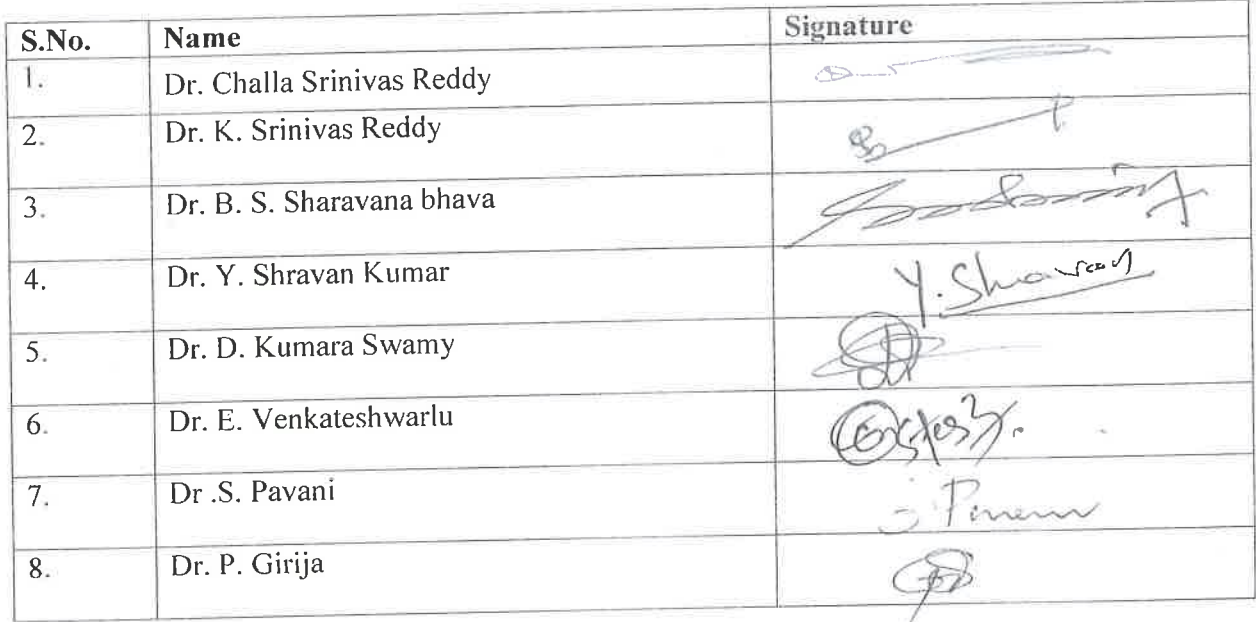 S.No. Name Signature
1. Dr. Challa Srinivas Reddy
2. Dr. K. Srinivas Reddy
3. Dr. B. S. Sharavana bhava
4. Dr. Y. Shravan Kumar Y. Shravan
5. Dr. D. Kumara Swamy
6. Dr. E. Venkateshwarlu
7. Dr .S. Pavani
8. Dr. P. Girija